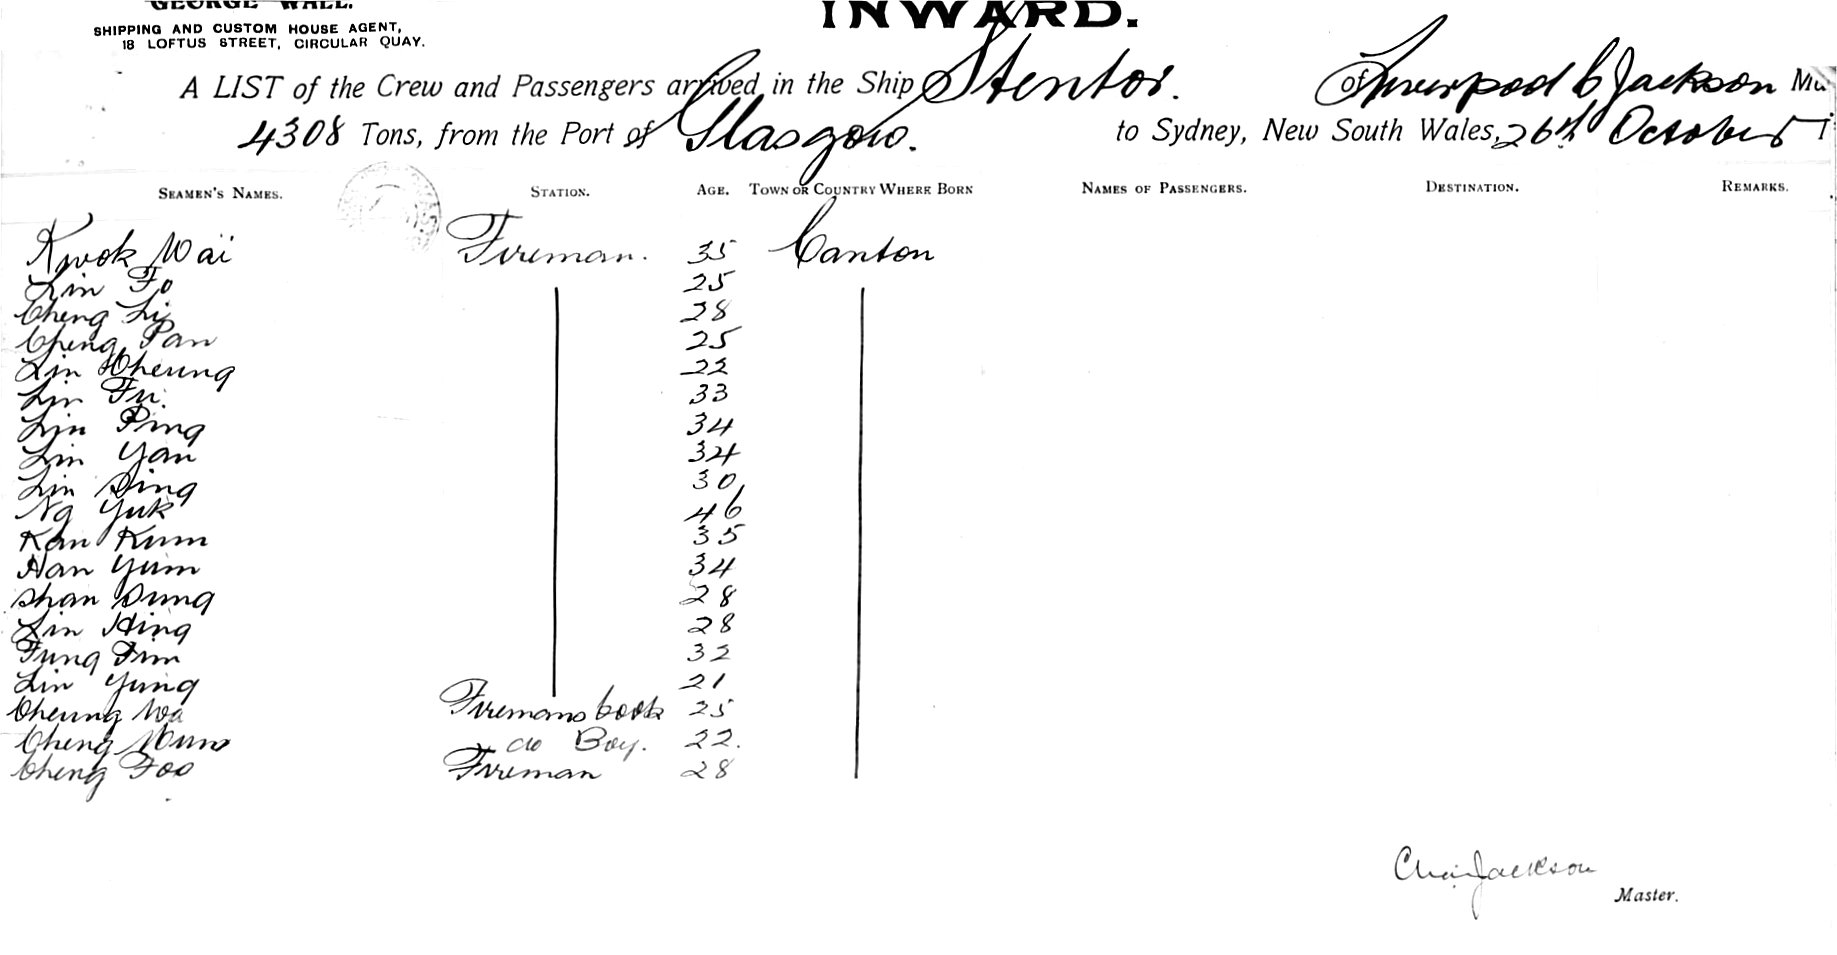 GEORGE WALL.
SHIPPING AND CUSTOM HOUSE AGENT,
18 LOFTUS STREET, CIRCULAR QUAY.
INWARD.
A LIST of the Crew and Passengers arrived in the Ship Stentor. of Liverpool C Jackson
4308 Tons, from the Port of Glasgow. to Sydney, New South Wales, 26th October
SEAMEN'S NAMES. STATION. AGE. TOWN OR COUNTRY WHERE BORN NAMES OF PASSENGERS. DESTINATION. REMARKS.
Kwok Wai Fireman. 35 Canton
Lin Fo 25
Cheng Li 28
Cheng Pan 25
Lin Cheung 22
Lin Fu. 33
Lin Ping 34
Lin Yan 34
Lin Sing 30
Ng Yuk 46
Kan Kum 35
Han Yum 34
Shan Sung 28
Lin Hing 28
Fung Fim 32
Lin Yung 21
Cheung Wa Firemans Cook 25
Cheng Mun do Boy. 22.
Cheng Foo Fireman 28
Chas Jackson
Master.